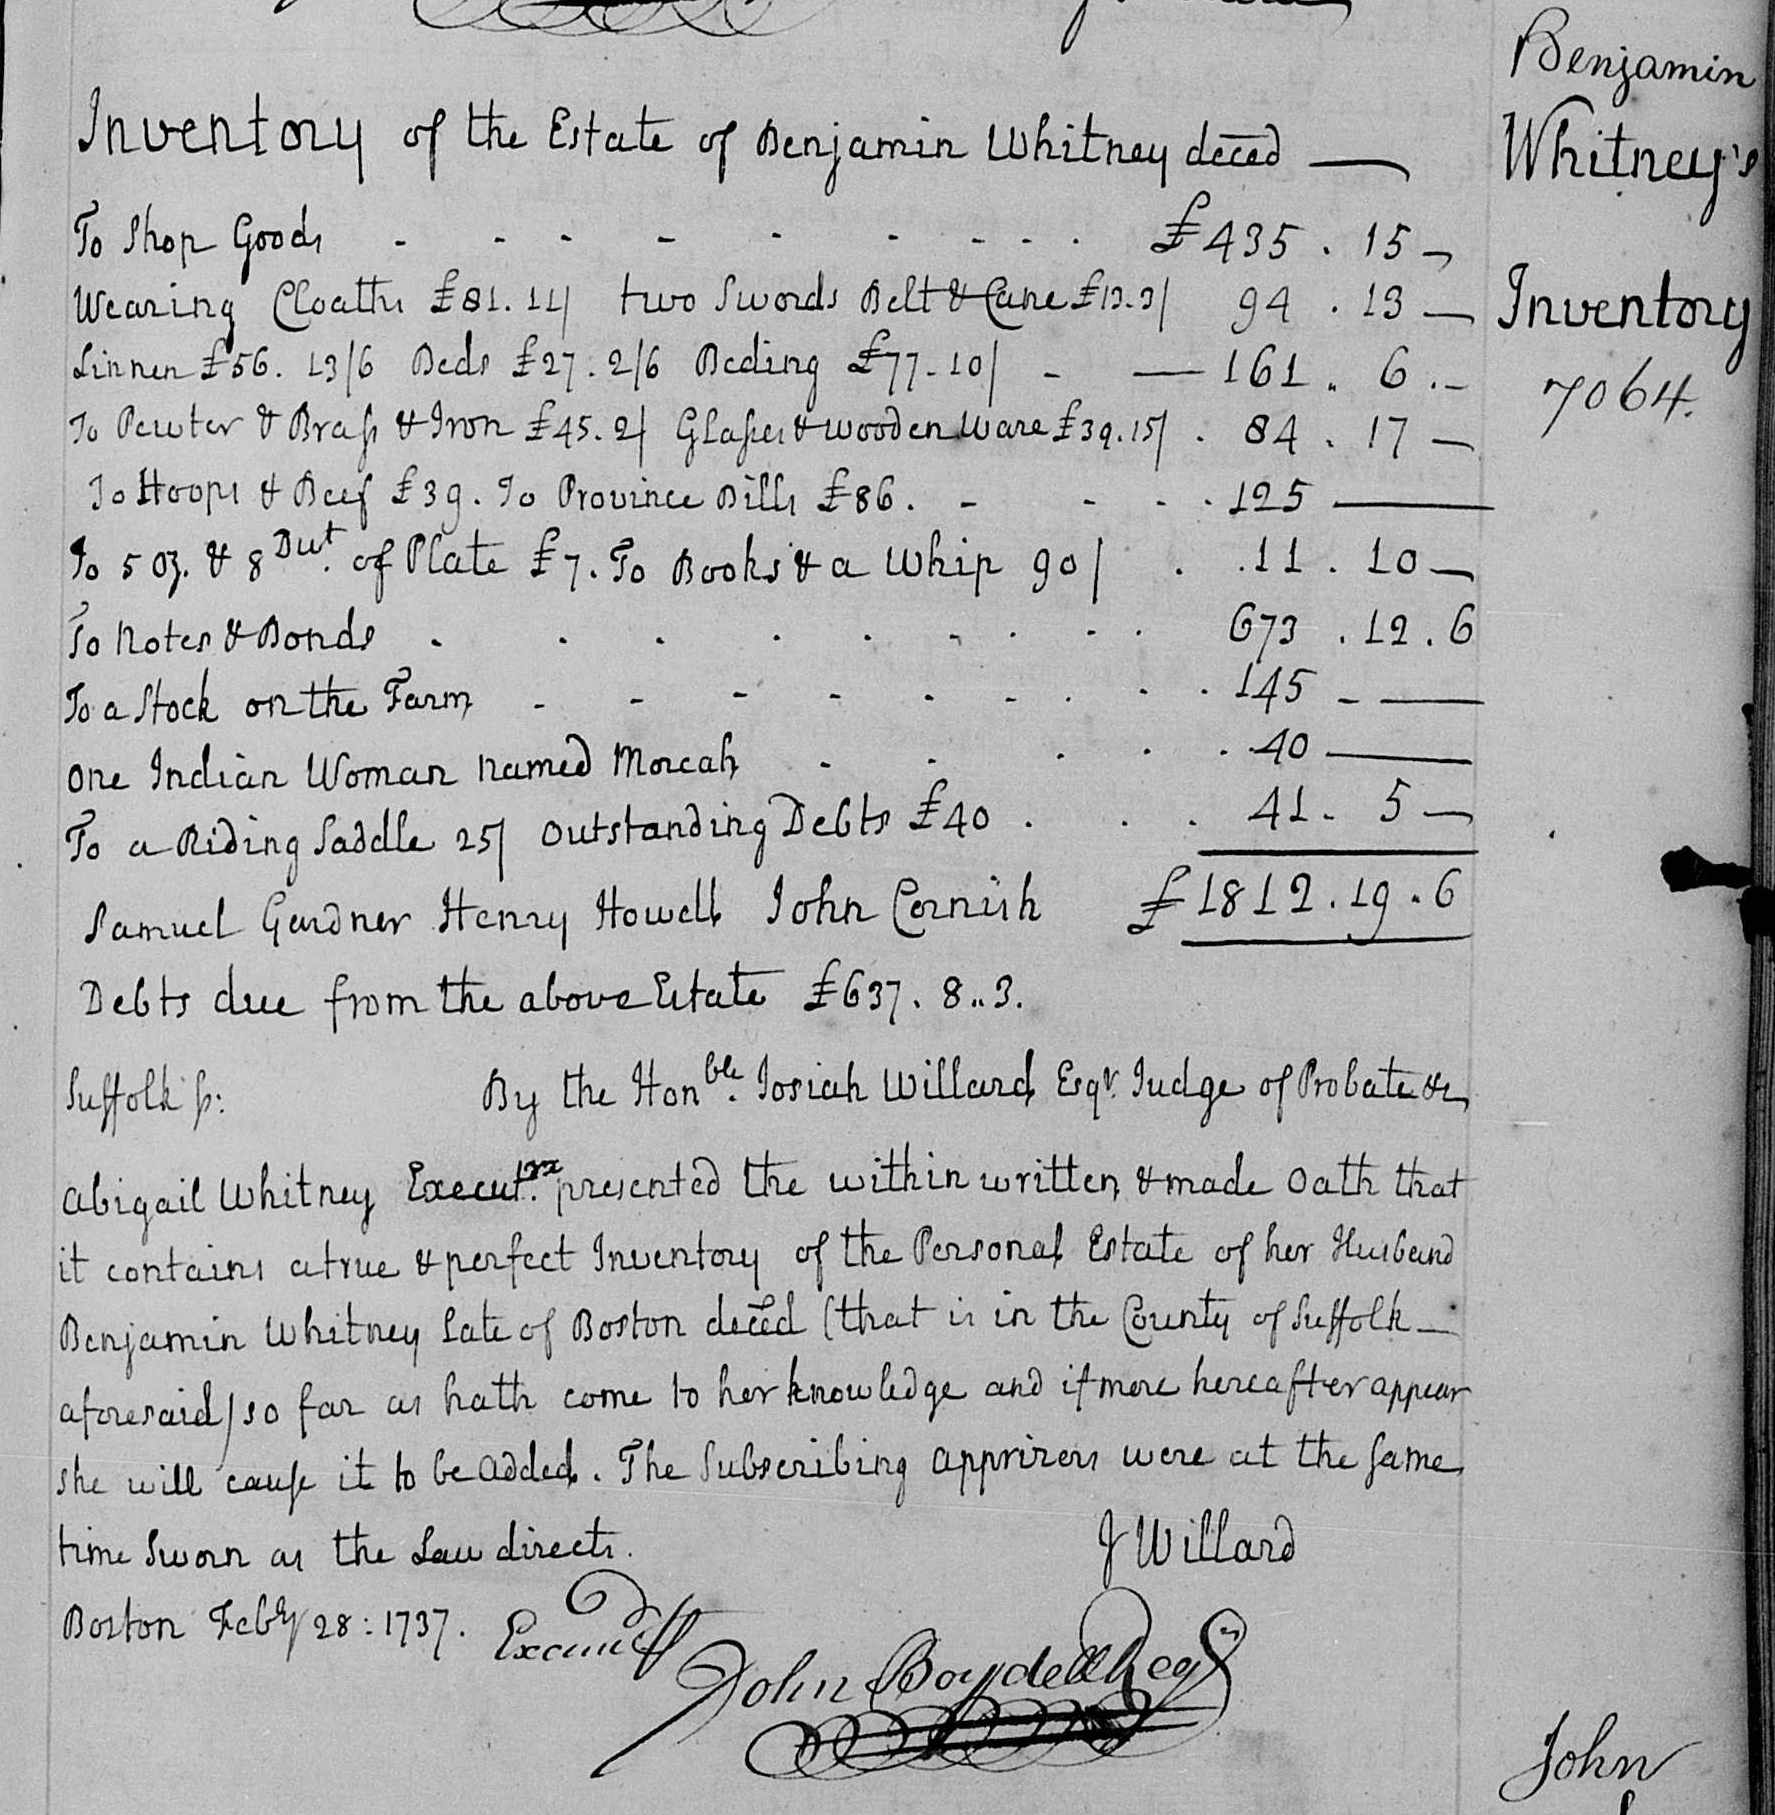 Benjamin
Whitney's
Inventory
7064.
Inventory of the Estate of Benjamin Whitney deced
To Shop Goods - - - - - - - - - £435 . 15 -
Wearing Cloaths £81. 11/ two Swords Belt & Cane £13.3/ 94 . 13 —
Linnen £56. 13/6 Beds £27. 2/6 Beding £77-10/ - — 161 . 6 . -
To Pewter & Brass & Iron £45. 2/ Glasses & Wooden Ware £39. 15/ . 84 . 17 —
To Hoops & Beef £39. To Province Bills £86. - - . . 125 ——
To 5 oz. & 8 Dwt. of Plate £7. To Books & a Whip 90/ . . 11 . 10 —
To Notes & Bonds . . . . . . . . . 673 . 12 . 6
To a Stock on the Farm - - - - - - . . . 145 - ——
One Indian Woman named Moreah . . . . . 40 ——
To a Riding Saddle 25/ Outstanding Debts £40 . . . 41 . 5 —
Samuel Gardner Henry Howell John Cornish £1812 . 19 . 6
Debts due from the above Estate £637. 8..3.
Suffolk ss: By the Honble. Josiah Willard Esqr. Judge of Probate &c
Abigail Whitney Executrx. presented the within written & made Oath that
it contains a true & perfect Inventory of the Personal Estate of her Husband
Benjamin Whitney Late of Boston deced (that is in the County of Suffolk —
aforesaid) so far as hath come to her knowledge and if more hereafter appear
she will cause it to be added. The Subscribing apprizers were at the same
time Sworn as the Law directs. J Willard
Boston Feby 28: 1737. Examd John Boydell Regr
John